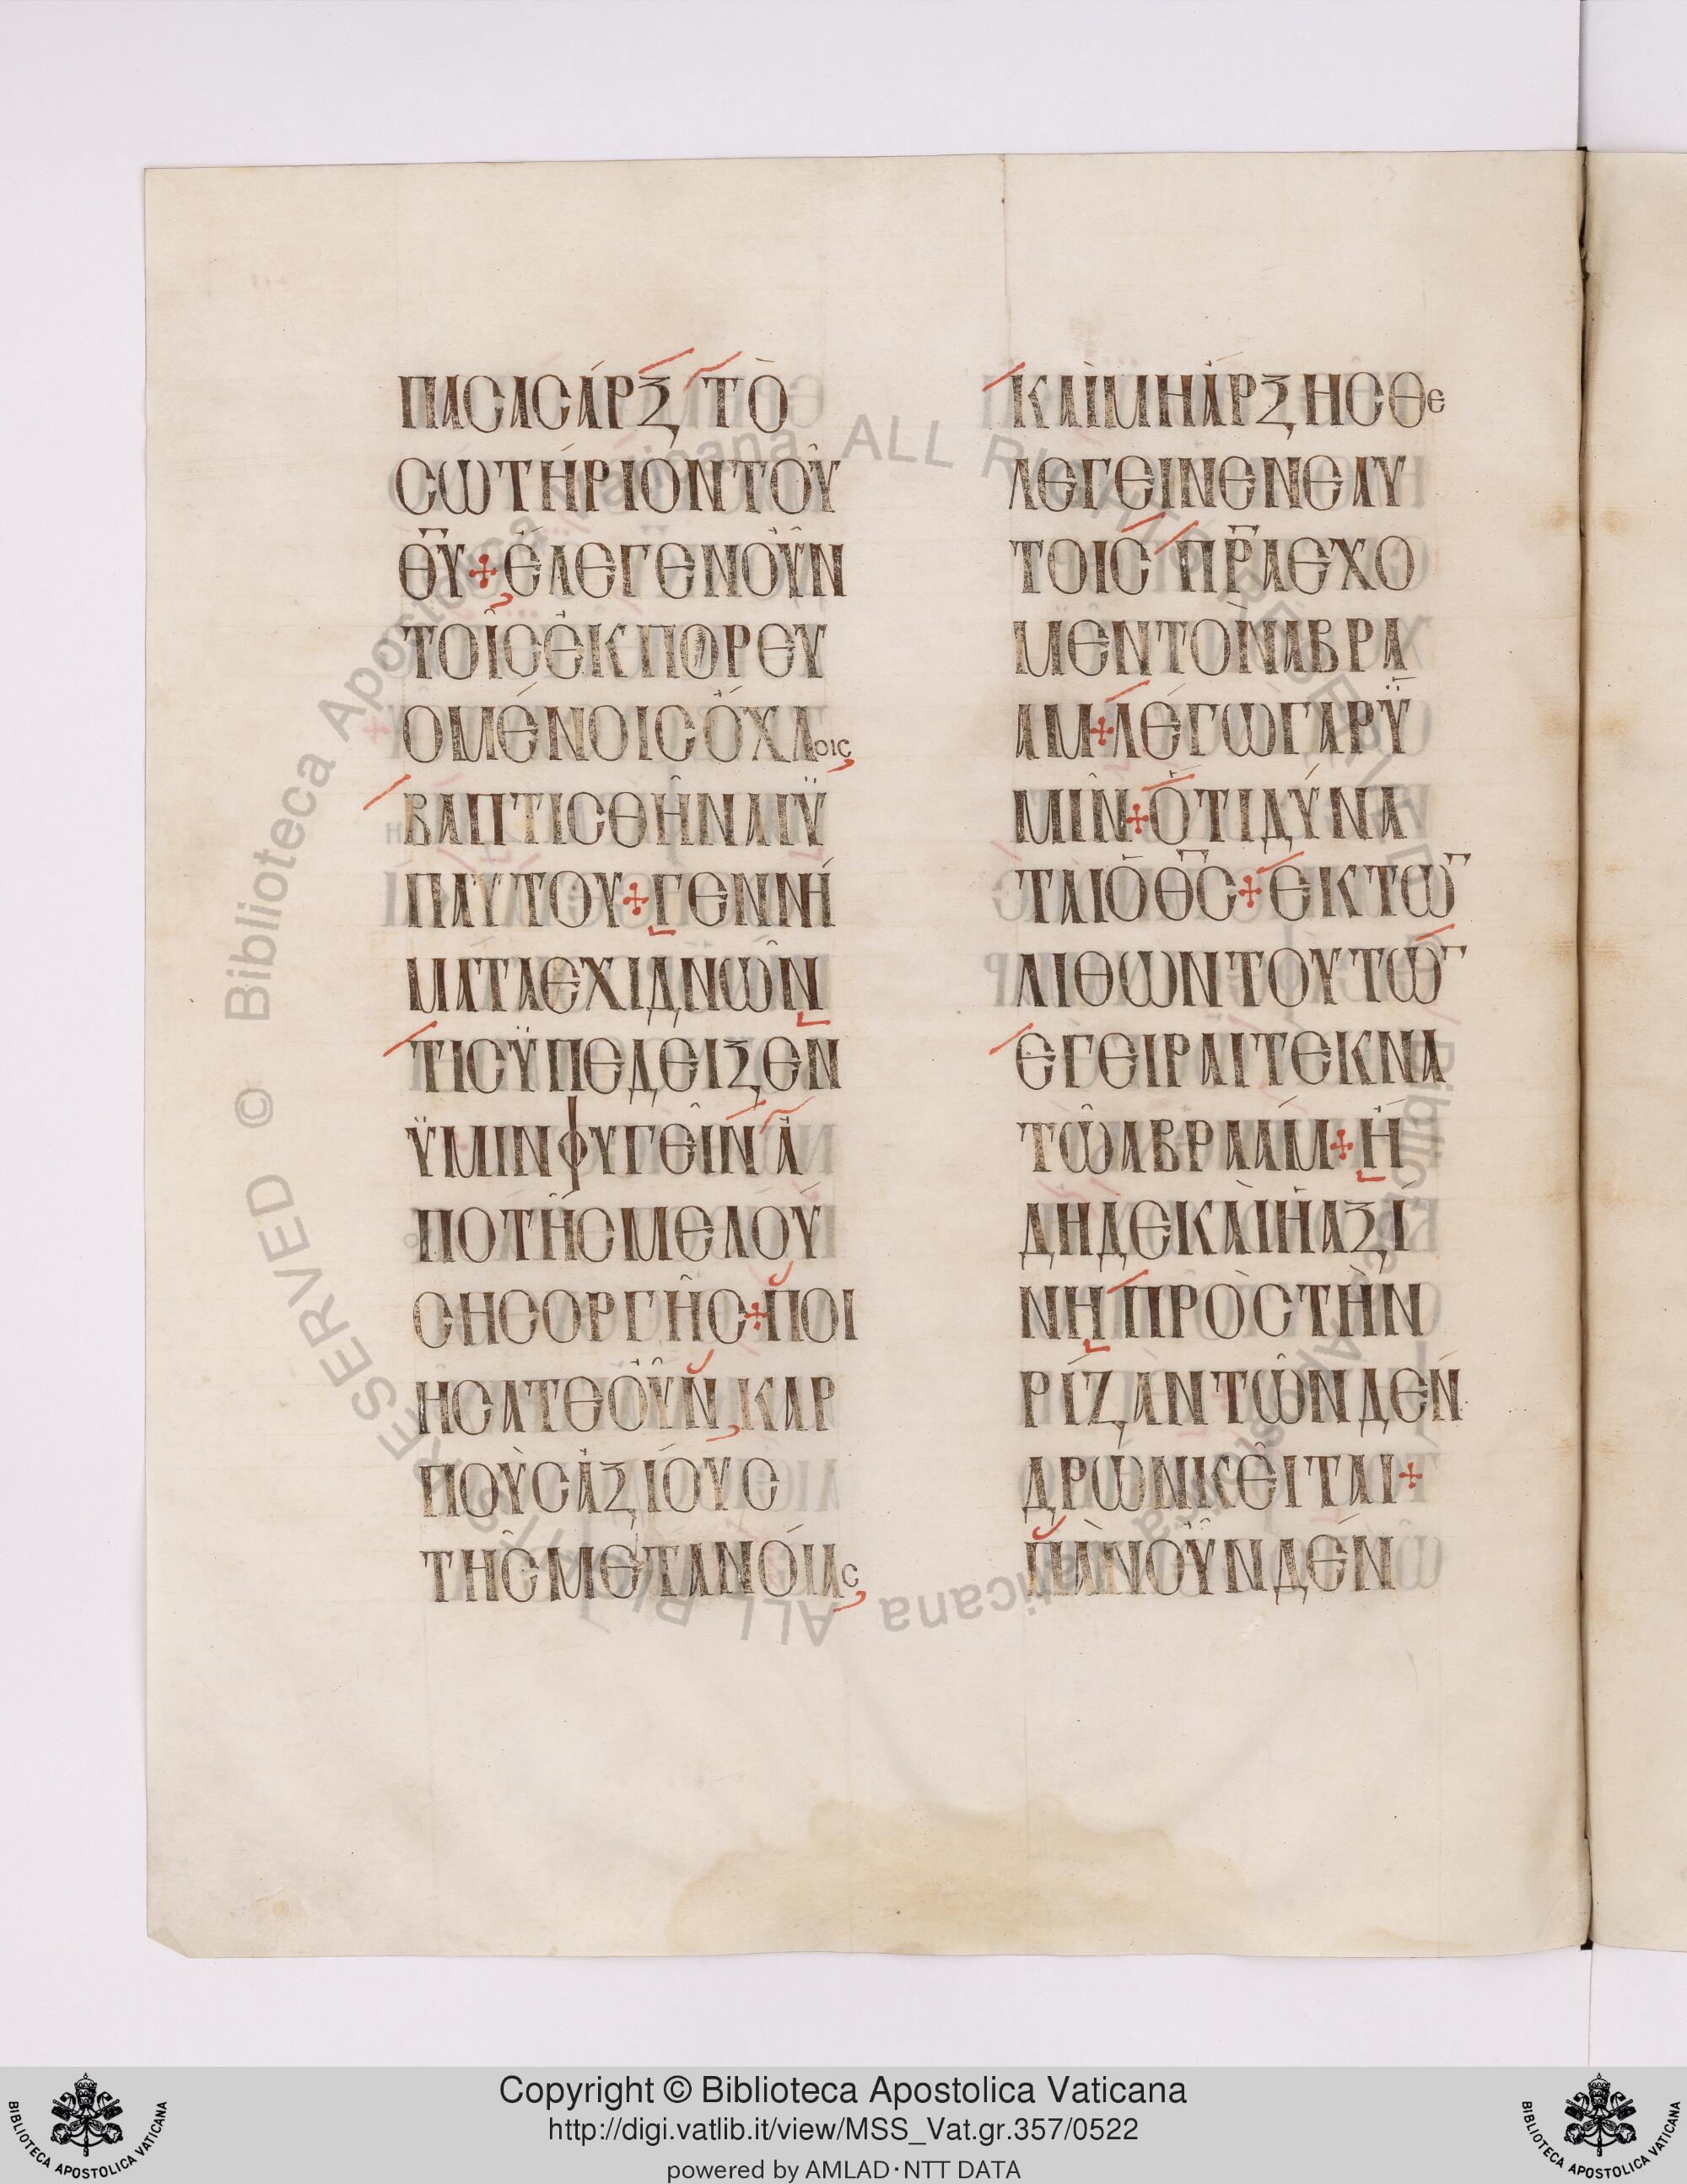 ΠΑCΑCÀΡΞ ΤῸ
CΩΤΉΡΙΟΝΤΟΥ͂
ΘΥ̅+ἜΛΕΓΕΝΟΥ̓͂Ν
ΤΟΙ͂CἘΚΠΟΡΕΥ
ΟΜΈΝΟΙCὌΧΛΟΙC
ΒΑΠΤΙCΘΗ͂ΝΑΙΫ
ΠΑΥΤΟΥ+ΓΕΝΝΉ
ΜΑΤΑΕΧΙΔΝΩ͂Ν
ΤΙCΫΠΕΔΕΙΞΕΝ
ΫΜΙΝΦΥΓΕΙ͂Ν Ἀ
ΠΟΤΗ͂CΜΕΛΟΎ
CΗCΟΡΓΗ͂C+ΠΟΙ
ΗCΑΤΕΟΥ̓͂Ν ΚΑΡ
ΠΟῪCἈΞΊΟΥC
ΤΗ͂CΜΕΤΑΝΟΊΑC
ΚΑῚΜΗἈΡΞΗCΘΕ
ΛΕΓΕΙΝΕΝΕΑΥ
ΤΟΙC ΠΡ̅ΑΕΧΟ
ΜΕΝΤΟῺΝΑΒΡΑ
ΑΜ+ΛΈΓΩΓΑΡΫ
ΜΙ͂Ν+ὍΤΙΔΎΝΑ
ΤΑΙὉΘC̅+ΕΚΤΩ̅
ΛΙΘΩΝΤΟΥΤΩ̅
ΕΓΕΙΡΑΙΤΕΚΝΑ
ΤΩ͂ΑΒΡΑΆΜ+Ἤ
ΔΗΔΕΚΑῚἩΑΞΊ
ΝΗ ΠΡῸCΤῊΝ
ΡΊΖΑΝΤΩ͂ΝΔΈΝ
ΔΡΩΝΚΕΙ͂ΤΑΙ+
ΠᾺΝΟΥ̓͂ΝΔΈΝ
Copyright © Biblioteca Apostolica Vaticana
http://digi.vatlib.it/view/MSS_Vat.gr.357/0522
powered by AMLAD·NTT DATA
BIBLIOTECA APOSTOLICA VATICANA
BIBLIOTECA APOSTOLICA VATICANA